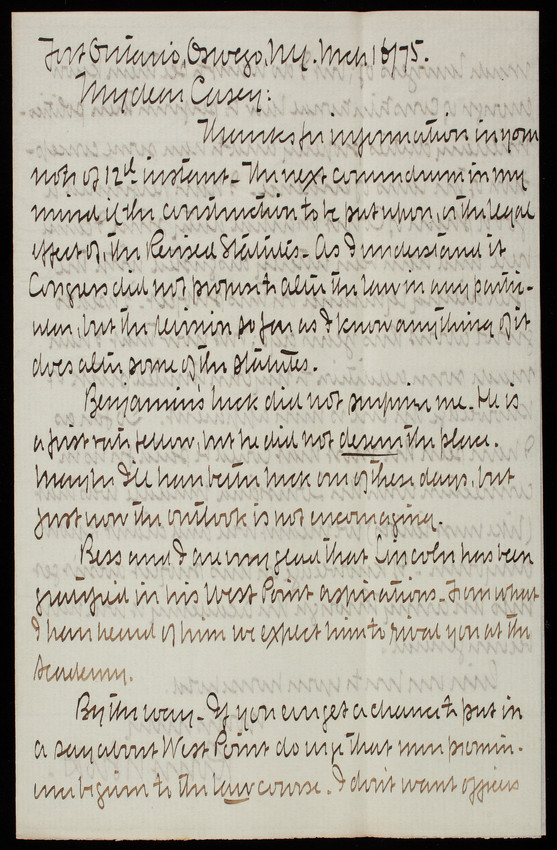 Fort Ontario, Oswego, N.Y. Mch 16/75.
My dear Casey:
Thanks for information in your
note of 12th instant - The next conundrum in my
mind is the construction to be put upon, or the legal
effect of, the Revised Statutes - As I understand it
Congress did not propose to alter the law in any partic-
ular, but the revision so far as I know anything of it
does alter some of the statutes.
Benjamin's luck did not surprise me - He is
a first rate fellow, but he did not deserve the place.
Maybe I'll have better luck one of these days, but
just now the outlook is not encouraging.
Bess and I are very glad that Lincoln has been
gratified in his West Point aspirations - From what
I have heard of him we expect him to rival you at the
Academy.
By the way - If you ever get a chance to put in
a say about West Point do urge that more promin-
ence be given to the law course. I don't want officers